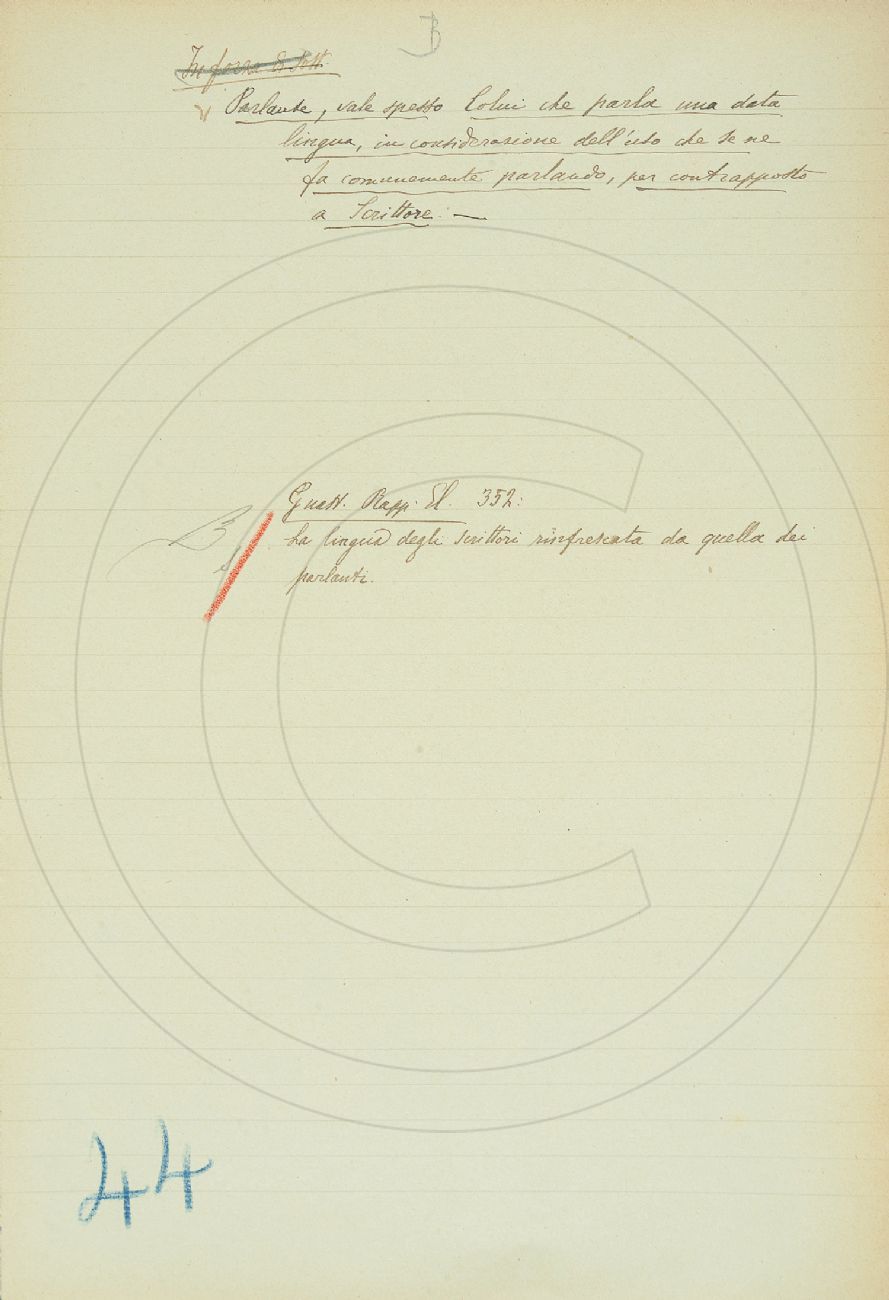 B
In forza di Sost.
Parlante, vale spesso Colui che parla una data
lingua, in considerazione dell'uso che se ne
fa comunemente parlando, per contrapposto
a Scrittore: —
Guast. Rapp. El. 352:
La lingua degli scrittori rinfrescata da quella dei
parlanti.
B
44